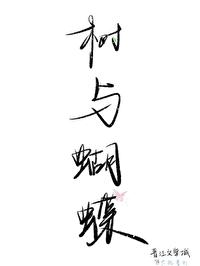 树与蝴蝶
晋江文学城